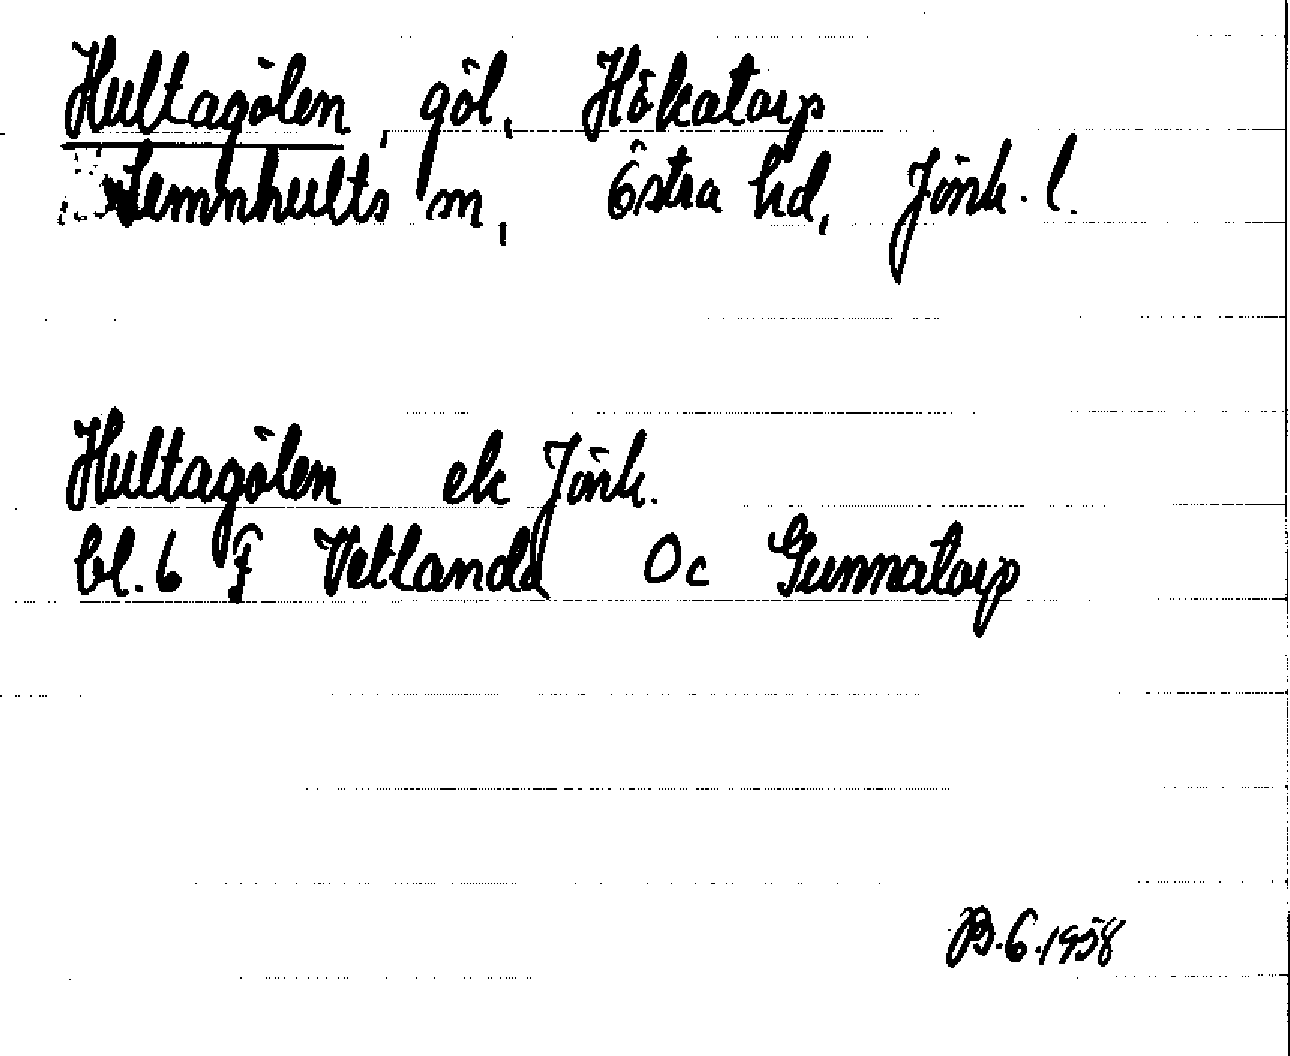 Hultagölen, göl, Hökatorp
Lemnhults sn, Östra hd, Jönk. l.
Hultagölen ek Jönk.
bl. 6 F Vetlanda Oc Gunnatorp
B. 6. 1958